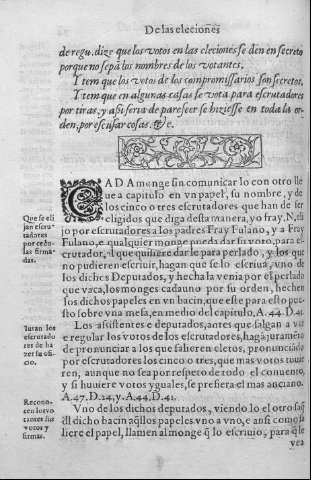 De las eleciones
de regu. dize que los votos en las eleciones se den en secreto
porque no sepã los nombres de los votantes.
Ytem que los votos de los compromissarios son secretos.
Ytem que en algunas casas se vota para escrutadores
por tiras, y assi seria de pareseer se hiziesse en toda la or-
den, por escusar cosas. &c.
CADA monge sin comunicar lo con otro lle
ue a capitulo en vn papel, su nombre, y de
los cinco o tres escrutadores que han de ser
eligidos que diga desta manera, yo fray, N, eli
jo por escrutadores a los padres Fray Fulano, y a Fray
Fulano, e qualquier monge pueda dar su voto, para es-
crutador, al que quisiere darle para perlado, y los que
no pudieren escriuir, hagan que se lo escriua, vno de
los dichos Deputados, y hecha la venia por el perlado
que vaca, los monges cada vno por su orden, hechen
los dichos papeles en vn bacin, que este para esto pue-
sto sobre vna mesa, en medio del capitulo, A. 44. D. 41.
Los assistentes e diputados, antes que salgan a vir
e regular los votos de los escrutadores, haga juramẽto
de pronunciar a los que salieren eletos, pronunciãdo
por escrutadores los cinco o tres, que mas votos tuuie
ren, aunque no sea por respeto de todo el conuento,
y si huuiere votos yguales, se prefiera el mas anciano.
A. 47. D. 24. y. A. 44. D. 41.
Vno de los dichos deputados, viendo lo el otro saq̃
del dicho bacin aq̃llos papeles vno a vno, e ansi como sa
liere el papel, llamen al monge q̃ lo escriuio, para q̃ le
vea
Que se eli
jan escru-
tadores
por cedu-
las firma-
das.
Iuran los
escrutado
res de ha-
zer su ofi-
cio.
Recono-
cen los vo
tantes sus
votos y
firmas.